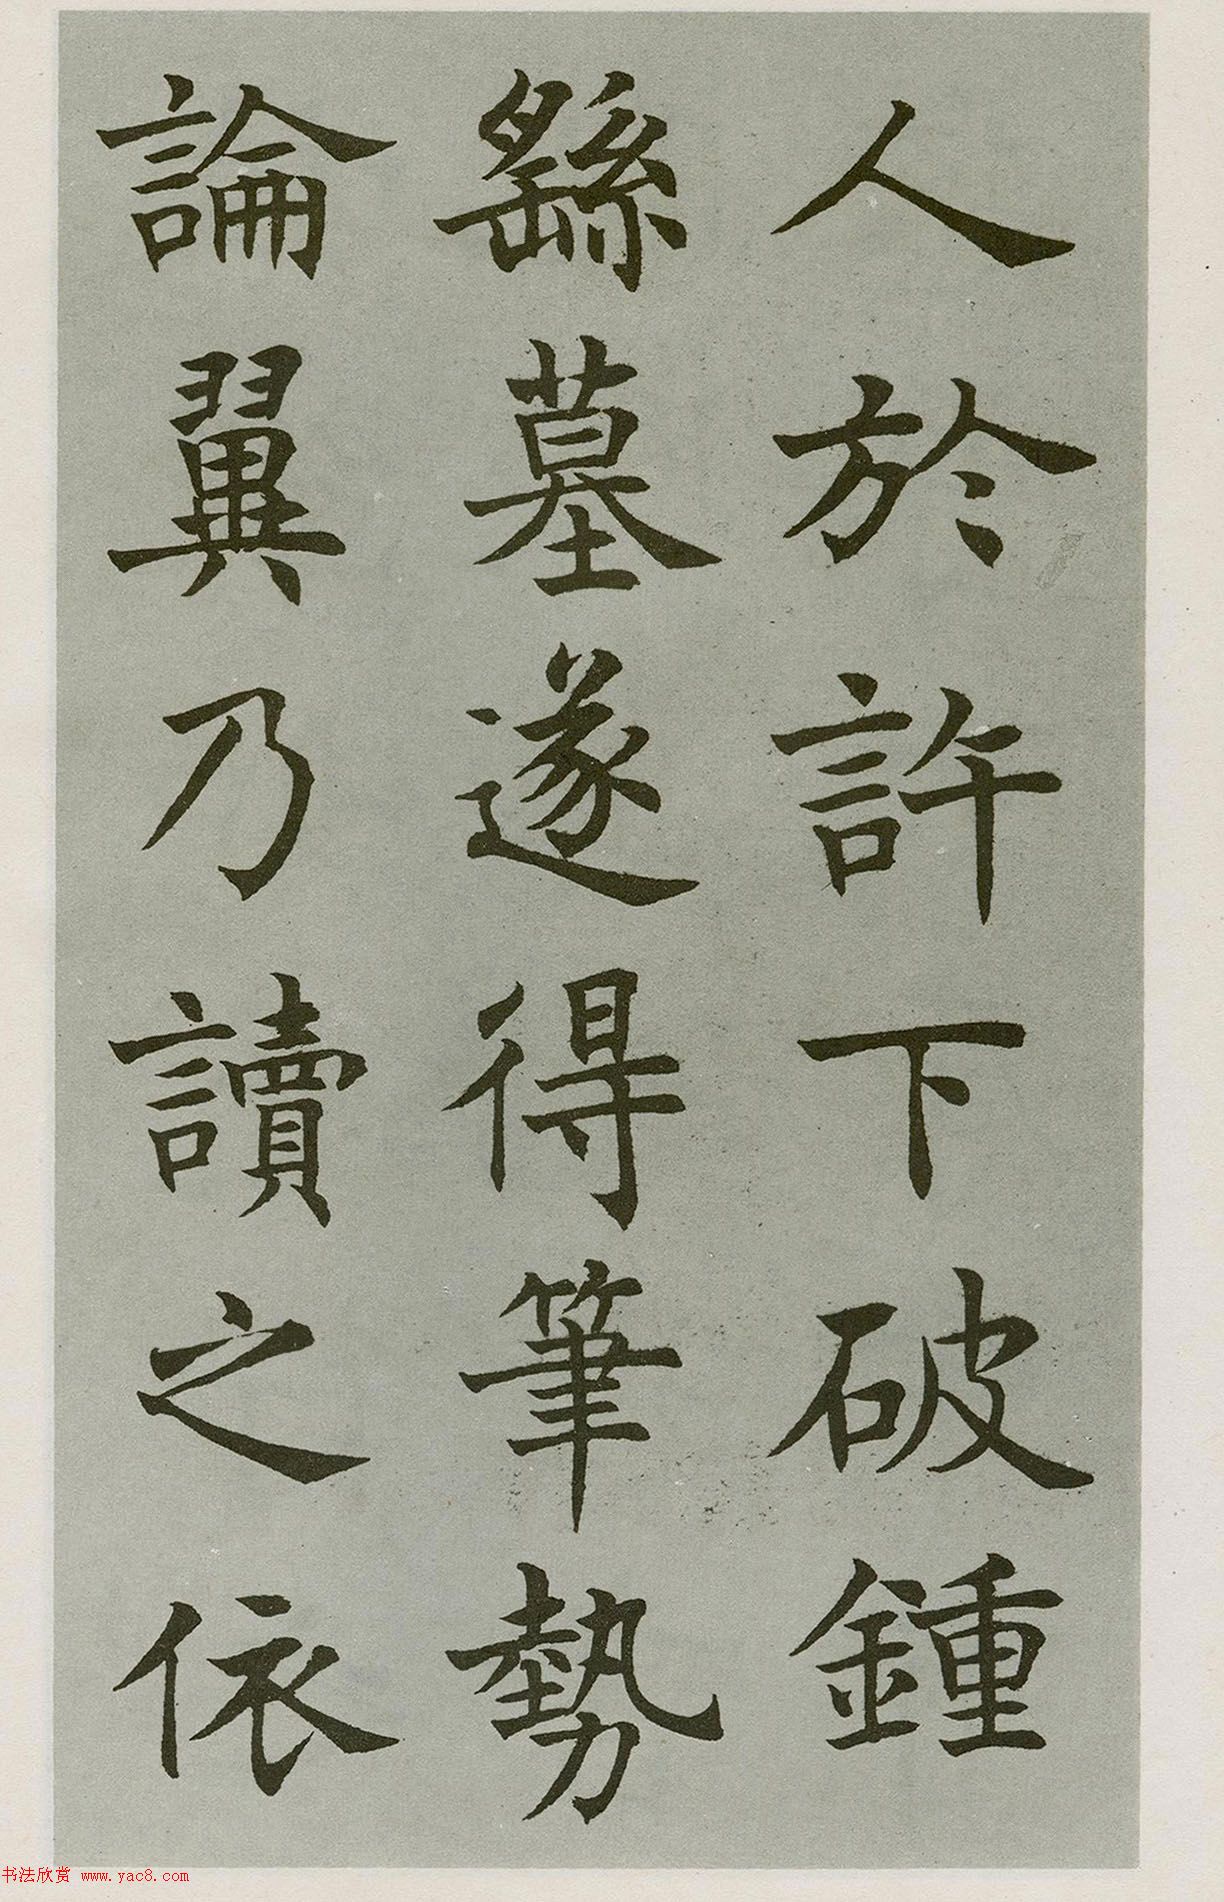 人於許下破鍾
繇墓遂得筆勢
論翼乃讀之依
书法欣赏 www.yac8.com